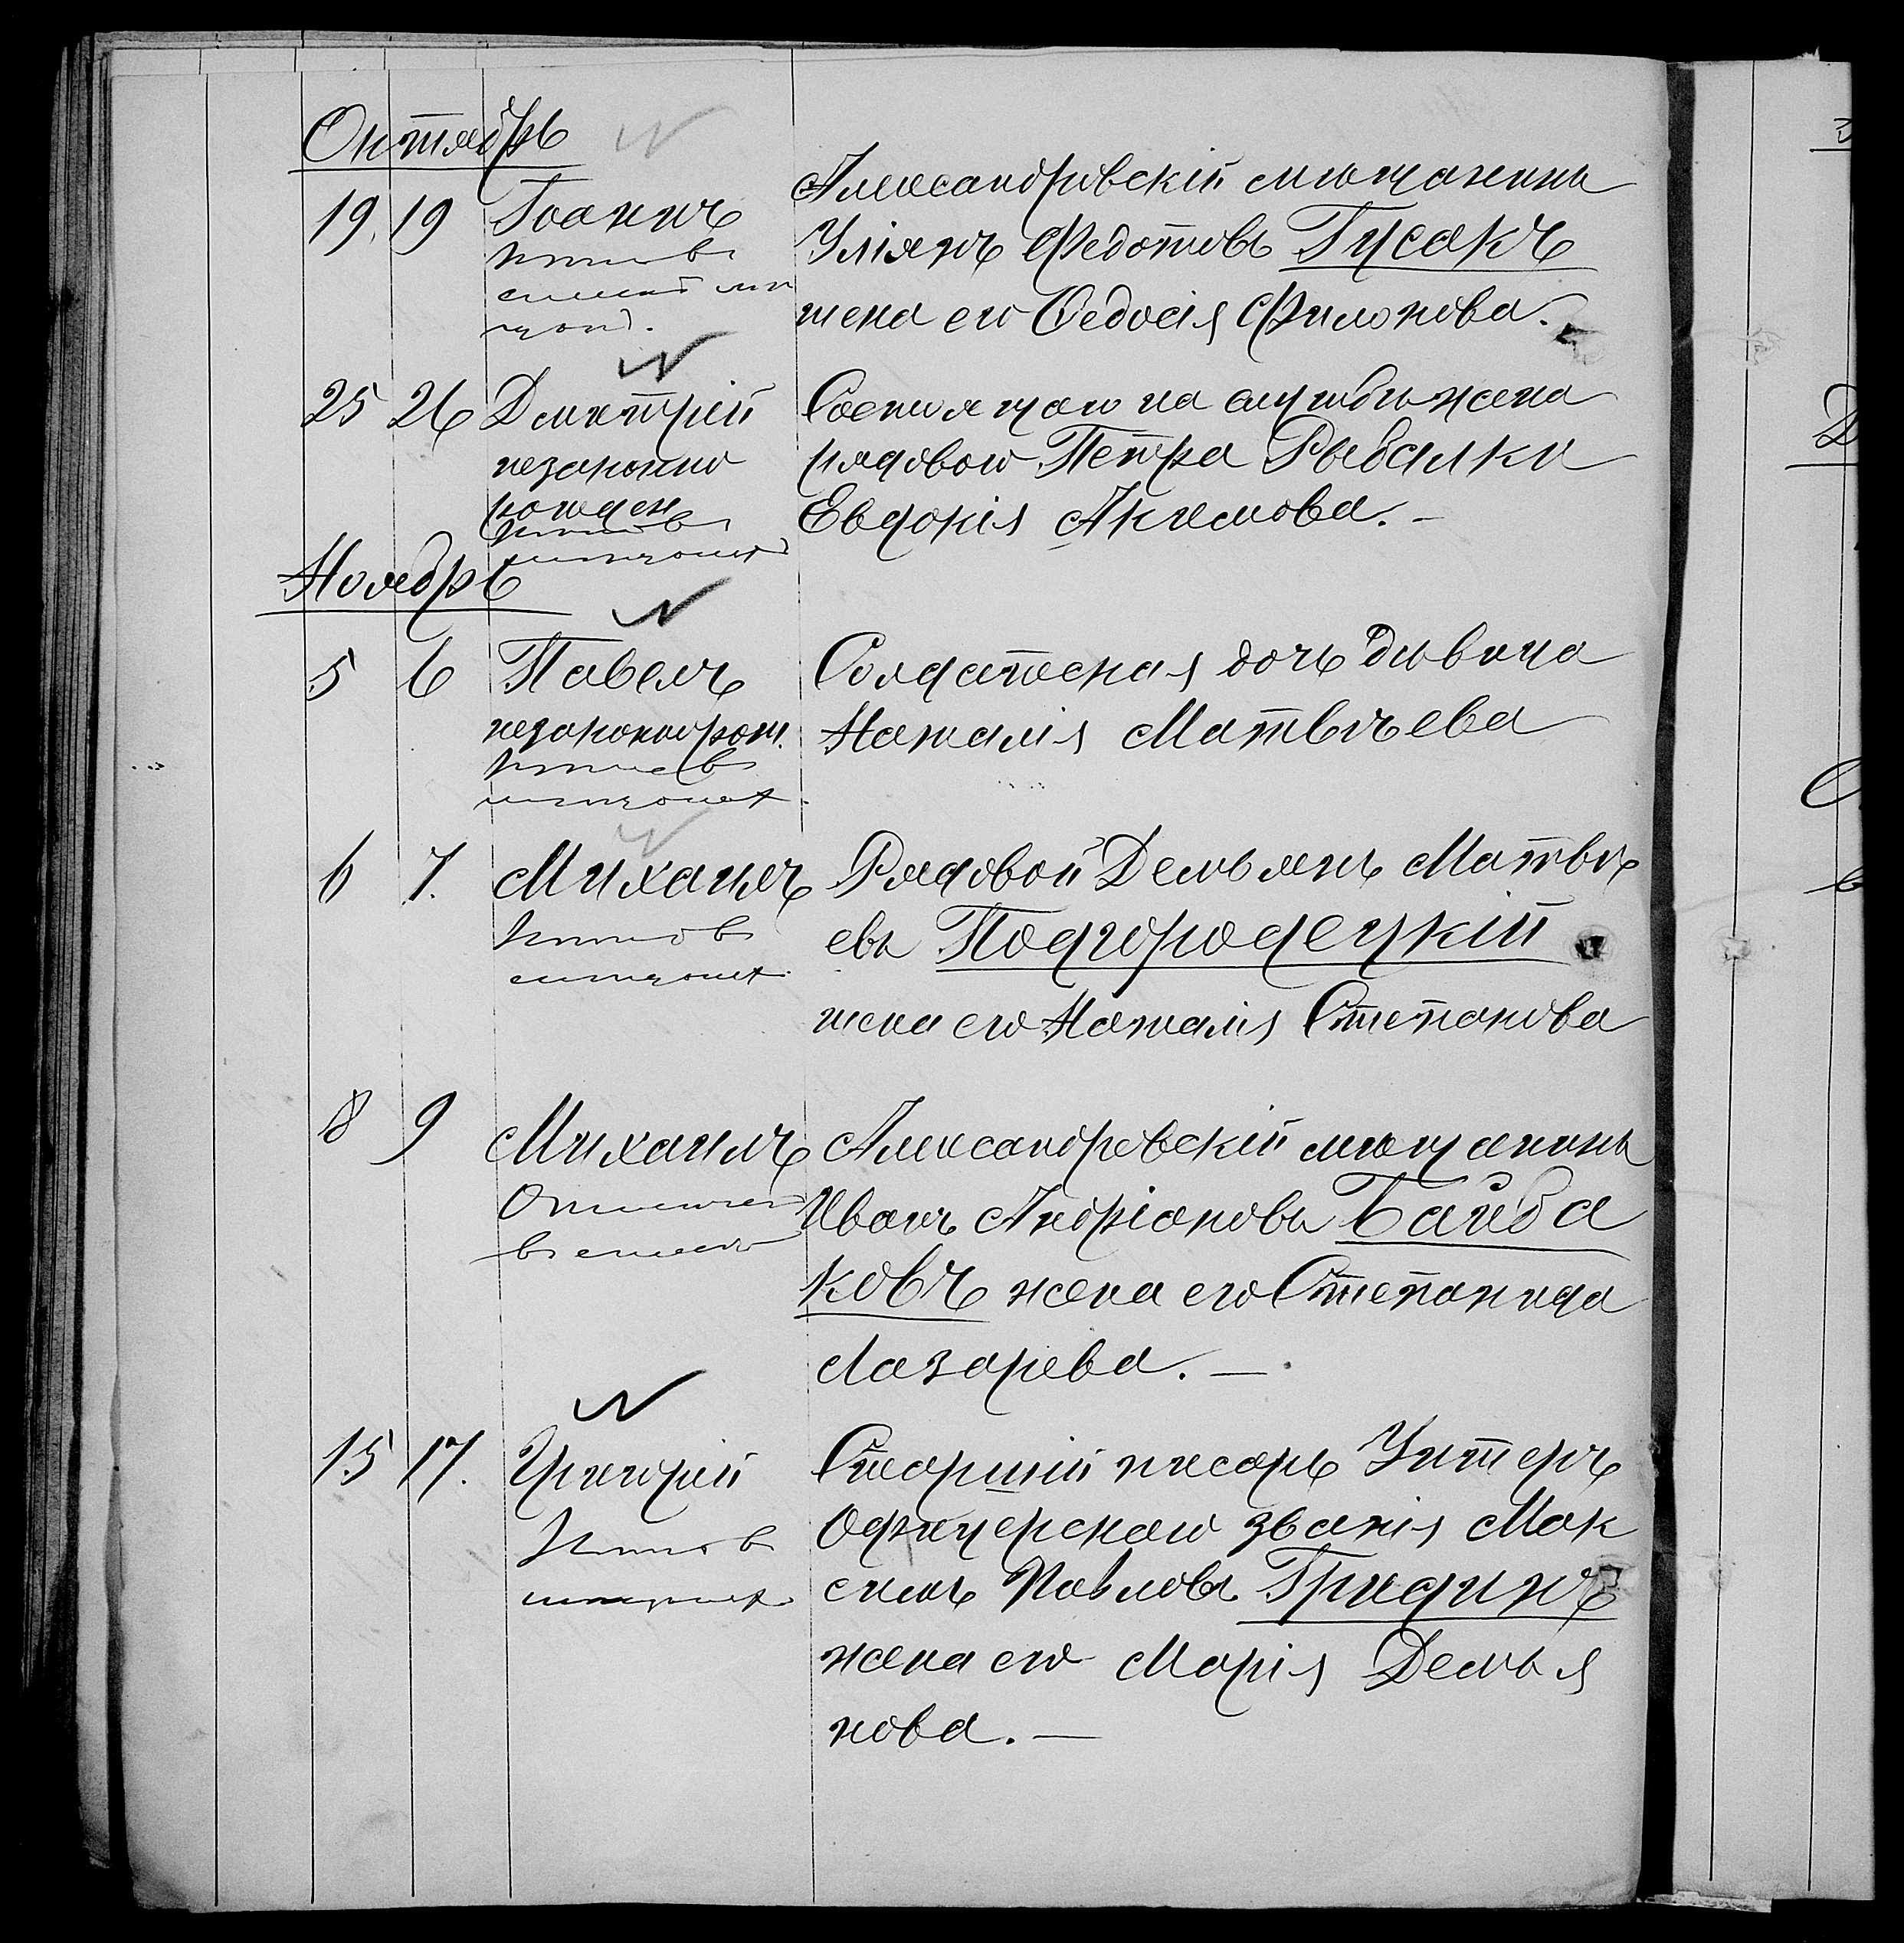 Октябрь
19. 19 Іоаннъ
Александровскій мѣщанинъ
Уліянъ Федотовъ Гусакъ
жена его Ѳедосія Филонова.
25 26 Дмитрій
незаконно
рожден
Состоящаго на службѣ жена
рядового Петра Рыбалки
Евдокія Акимова. —
Ноябрь
5 6 Павелъ
незаконнорож.
Солдатская дочь дѣвица
Наталія Матвѣева
6 7. Михаилъ
Рядовой Демьянъ Матвѣ
евъ Подгородецкій
жена его Наталія Степанова
8 9 Михаилъ
Александровскій мѣщанинъ
Иванъ Андріановъ Байба
ковъ жена его Степанида
Лазарева. —
15 17. Григорій
Старшій писарь Унтеръ
Офицерскаго званія Мак
симъ Павловъ Гридинъ
жена его Марія Демья
нова. —